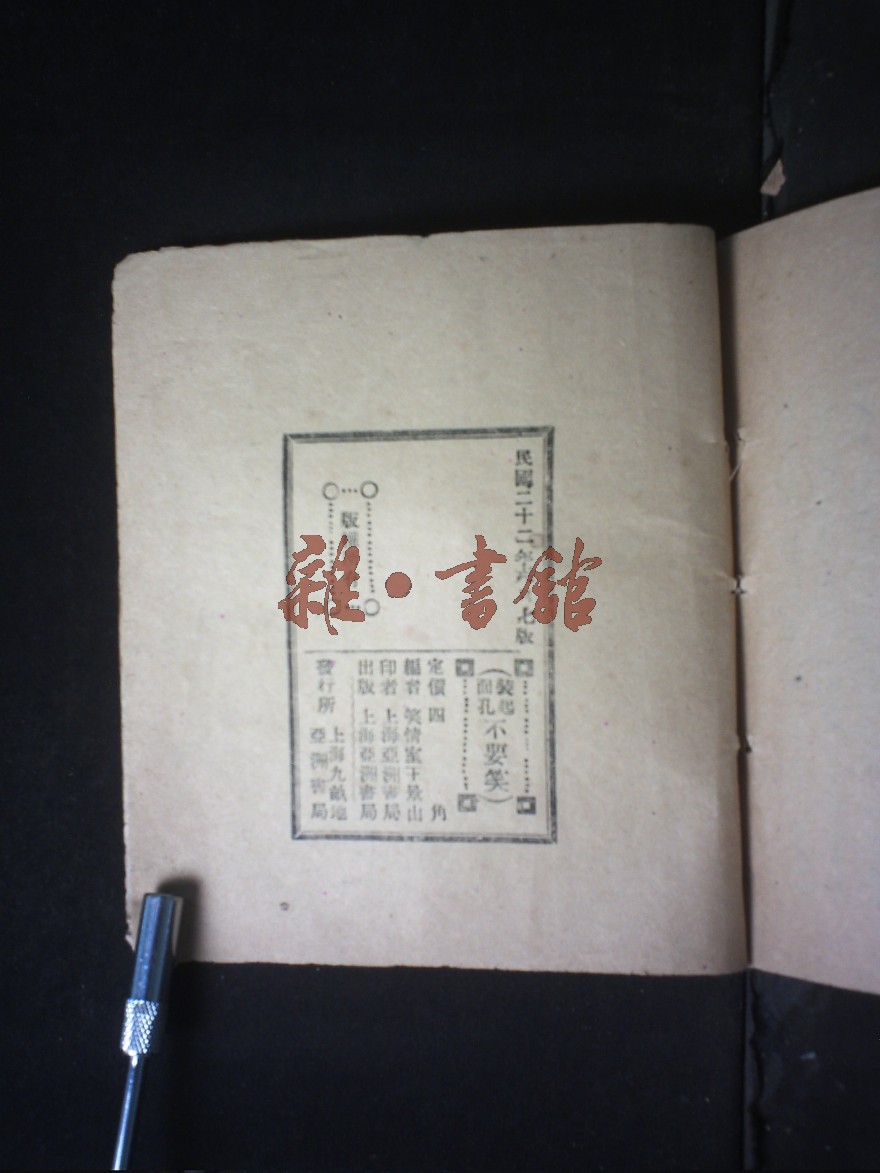 民國二十二年 七版
(裝起面孔不要笑)
定價四角
編者 笑情室王景山
印者 上海亞洲書局
出版 上海亞洲書局
發行所 上海九畝地
亞洲書局
版權
雜·書館